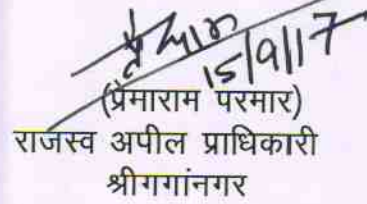 15/9/17
(प्रेमाराम परमार)
राजस्व अपील प्राधिकारी
श्रीगगांनगर